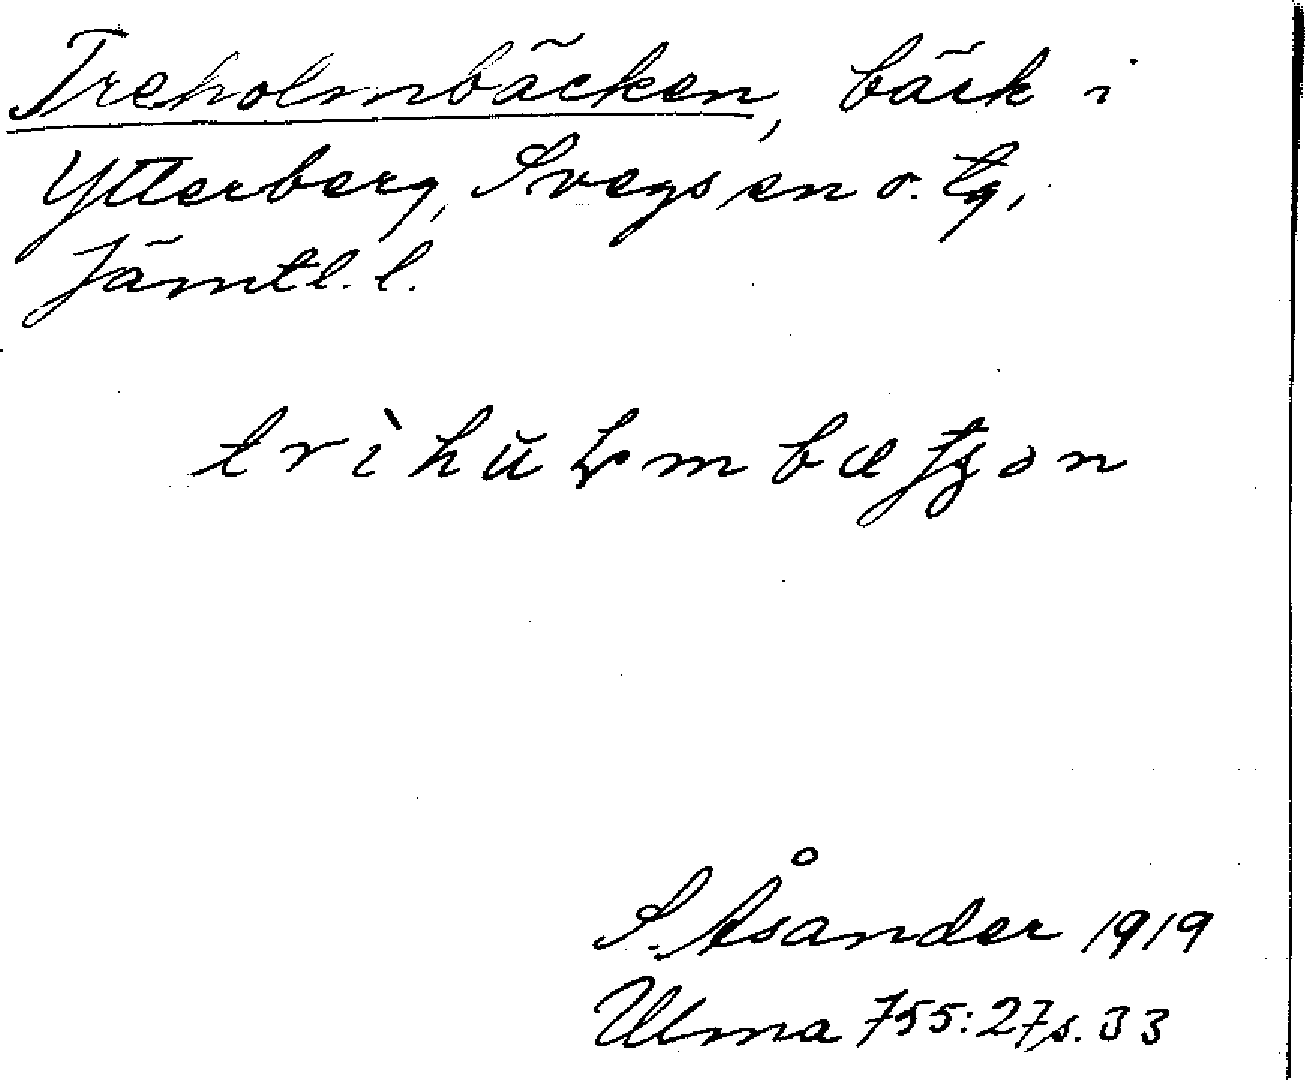 Treholmbäcken, bäck i
Ytterberg, Svegs sn o. tg,
Jämtl. l.
S. Åsander 1919
Ulma 755:27 s. 33